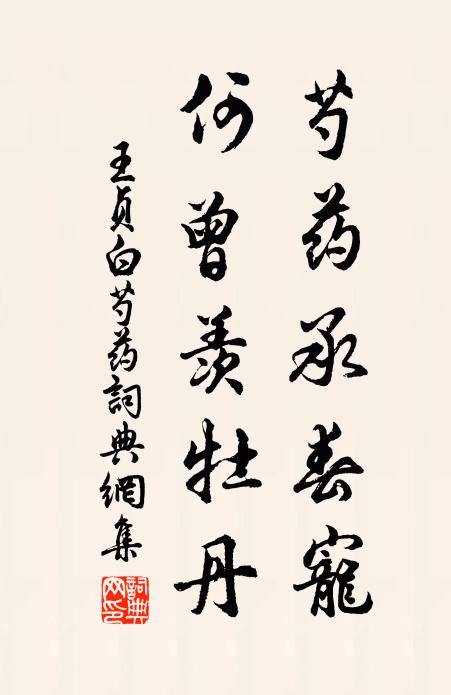 芍药承春寵
何曾羨牡丹
王貞白芍药詞典網集
詞典網印